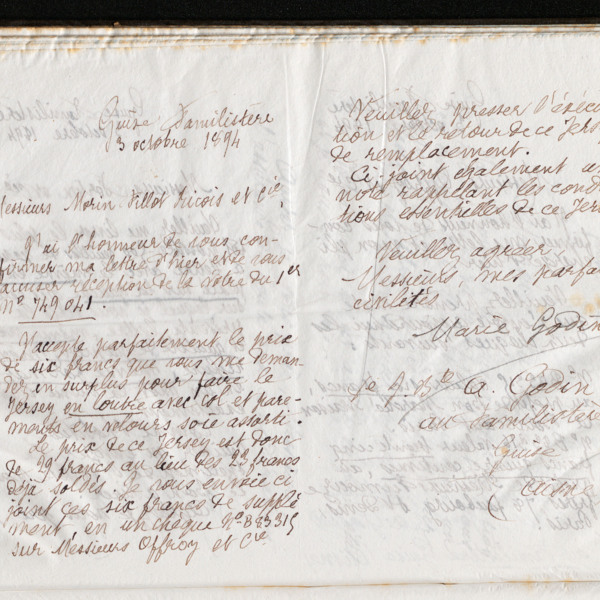 Guise Familistère
3 octobre 1894
Messieurs Morin Fillot Ricois et Cie,
J'ai l'honneur de vous con-
firmer ma lettre d'hier et de vous
accuser réception de la vôtre du 1er
No 749041.
J'accepte parfaitement le prix
de six francs que vous me deman-
dez en surplus pour faire le
Jersey en loutre avec col et pare-
ments en velours soie assorti.
Le prix de ce Jersey est donc
de 29 francs au lieu des 23 francs
déjà soldés. Je vous envoie ci
joint ces six francs de supplé
ment, en un chèque No 883315
sur Messieurs Offroy et Cie
Veuillez presser l'exécu
tion et le retour de ce Jersey
de remplacement.
Ci-joint également u
note rappellant les condi
tions essentielles de ce Jers
Veuillez agréer
Messieurs, mes parfai
civilités
Marie Godin
A. Godin
au Familistère
Guise
(Aisne